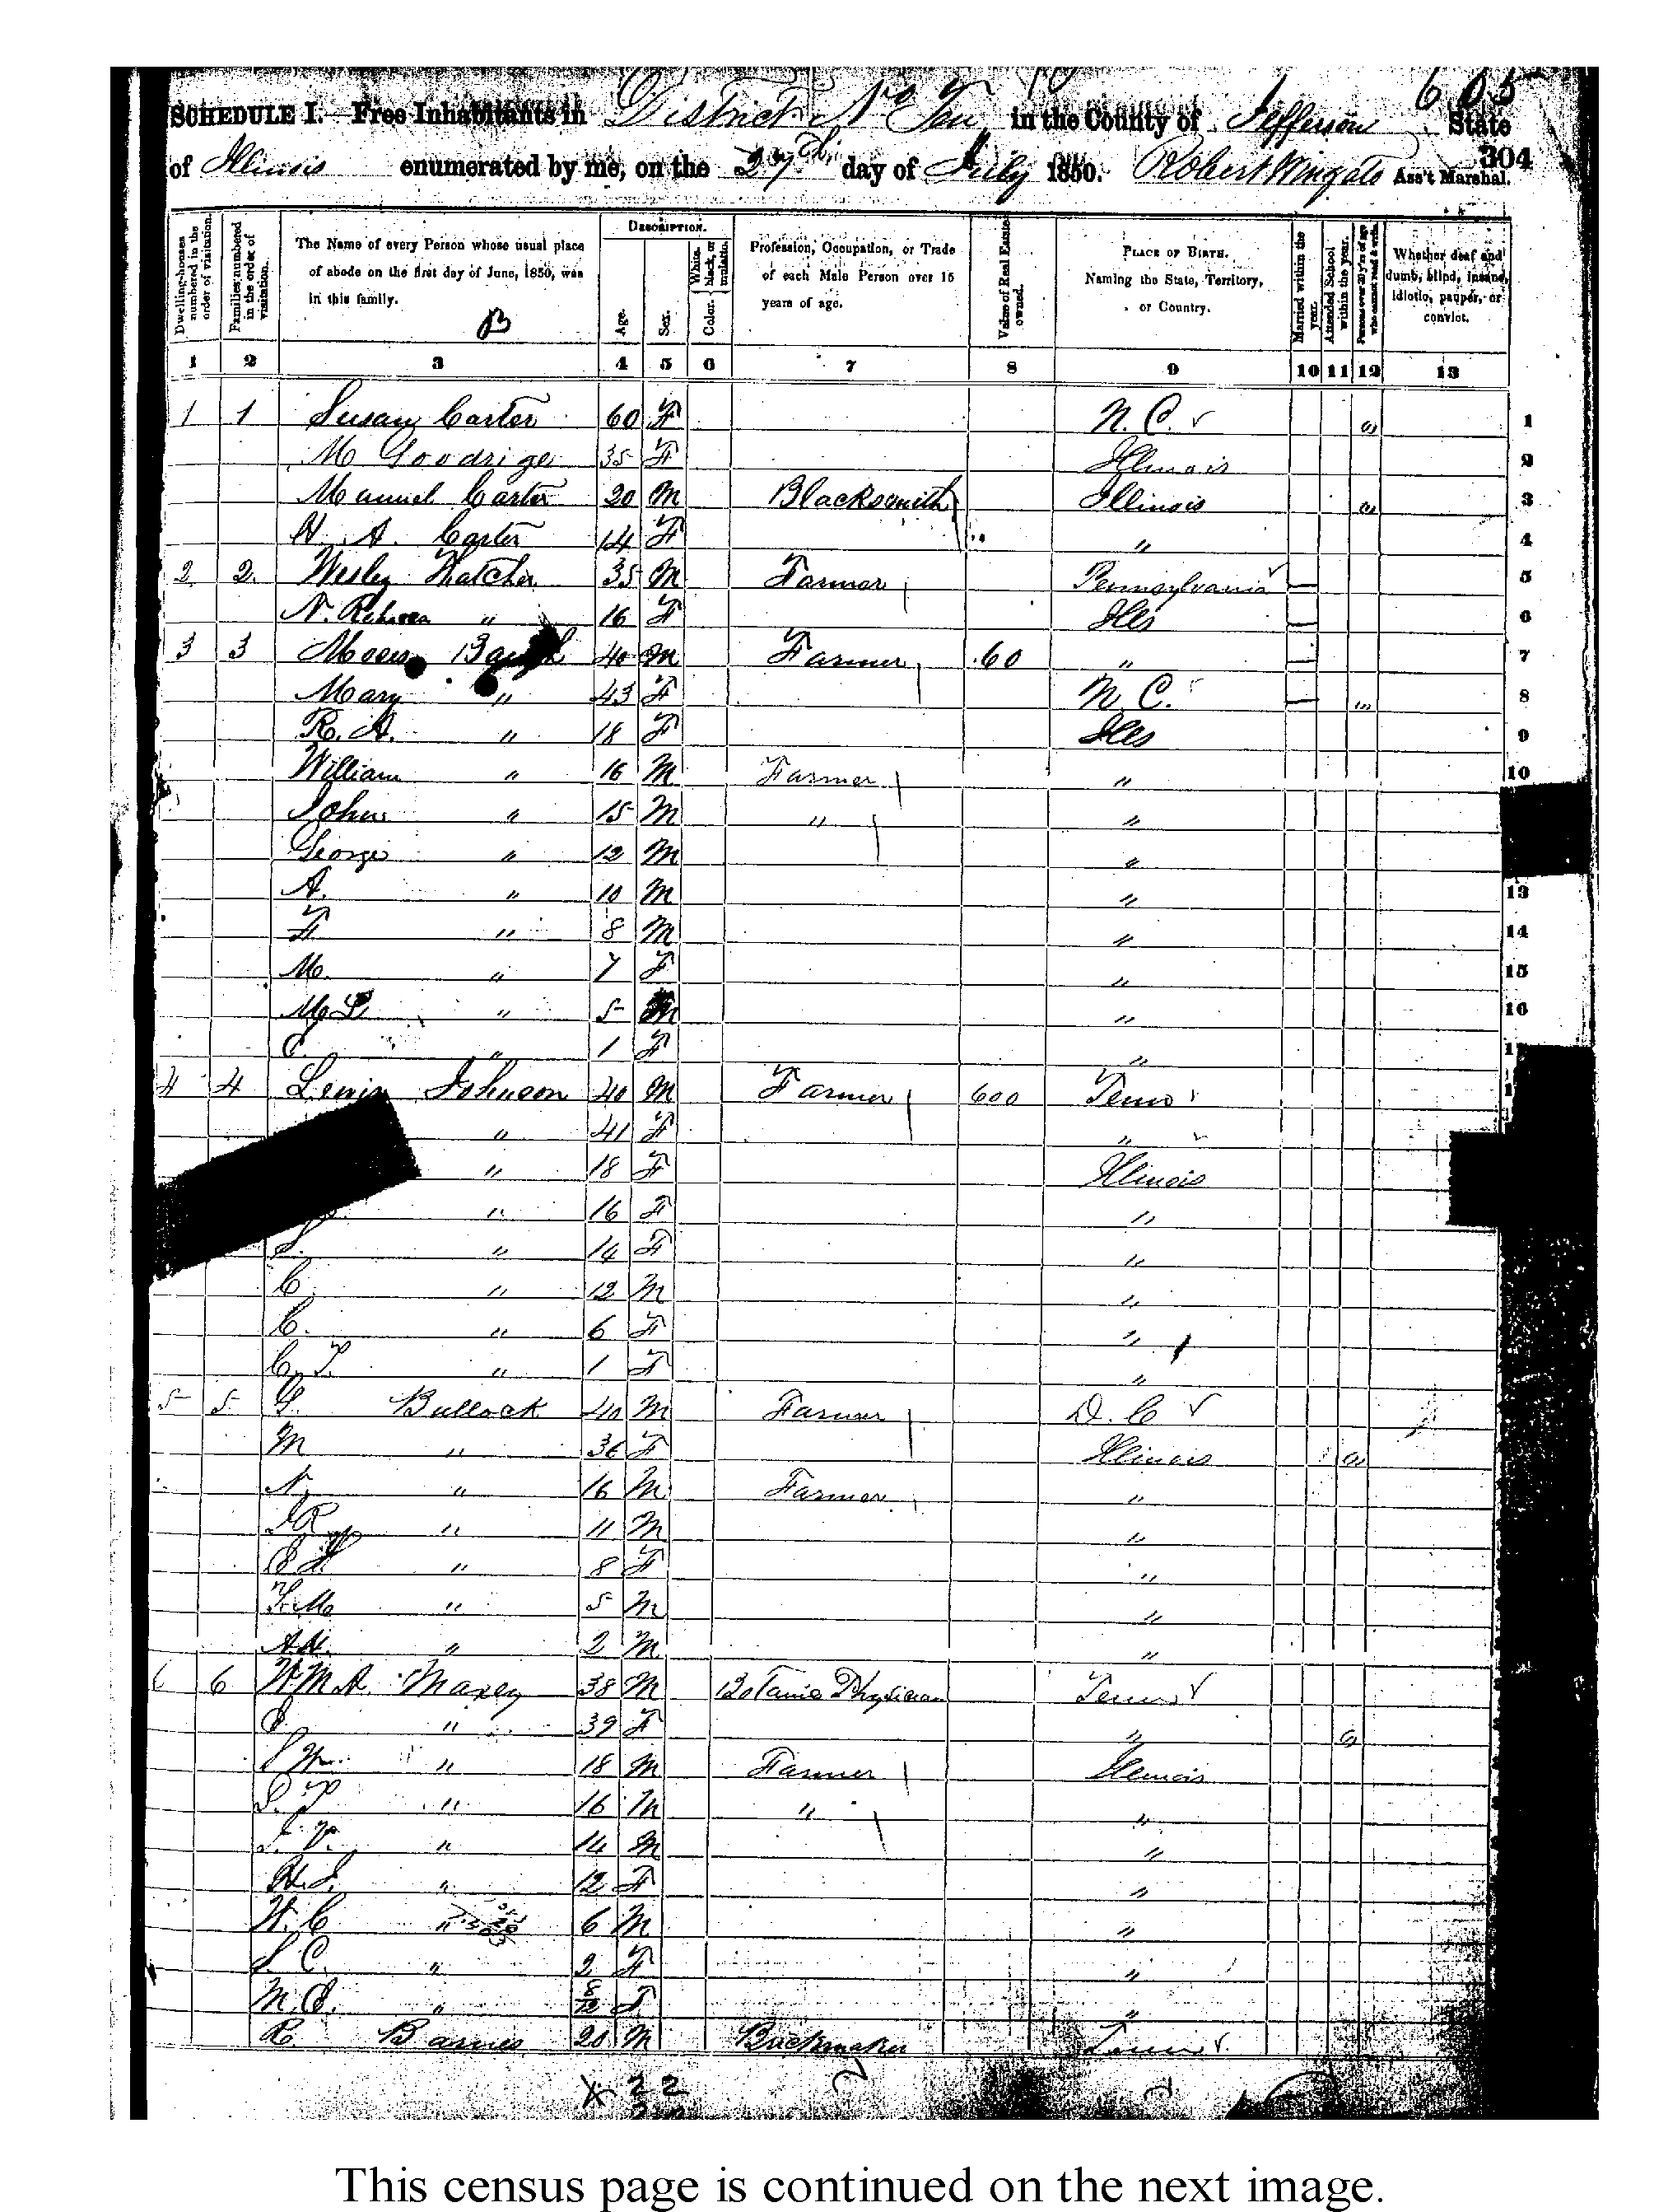 605
SCHEDULE I.—Free Inhabitants in District No Ten in the County of Jefferson State
of Illinois enumerated by me, on the 27th day of July 1850. Robert Wingate Ass't Marshal.
304
Dwelling-houses numbered in the order of visitation.
Families numbered in the order of visitation.
The Name of every Person whose usual place of abode on the first day of June, 1850, was in this family.
B
DESCRIPTION.
Age.
Sex.
Color. White, black, or mulatto.
Profession, Occupation, or Trade of each Male Person over 15 years of age.
Value of Real Estate owned.
PLACE OF BIRTH. Naming the State, Territory, or Country.
Married within the year.
Attended School within the year.
Persons over 20 y'rs of age who cannot read & write.
Whether deaf and dumb, blind, insane, idiotic, pauper, or convict.
1 2 3 4 5 6 7 8 9 10 11 12 13
1 1 Susan Carter 60 F N. C. 1
M Goodrige 35 F Illinois 2
Manuel Carter 20 M Blacksmith Illinois 3
H. A. Carter 14 F " 4
2 2 Wesley Hatcher 35 M Farmer Pennsylvania 5
N. Rebecca " 16 F Ills 6
3 3 Baugh 40 M Farmer 60 " 7
Mary " 43 F N. C. " 8
R. A. " 18 F Ills 9
William " 16 M Farmer " 10
John " 15 M " "
George " 12 M "
A. " 10 M " 13
F " 8 M " 14
M. " 7 F " 15
M. L. " 5 M " 16
C. " 1 F " 1
4 4 Lewis Johnson 40 M Farmer 600 Tenn 1
" 41 F "
" 18 F Illinois
" 16 F "
" 14 F "
C " 12 M "
C. " 6 F "
C. T. " 1 F "
5 5 G. Bullock 40 M Farmer D. C
M " 36 F Illinois
N. " 16 M Farmer "
J R " 11 M "
" 8 F "
F. M " 5 M "
" 2 M "
6 Wm A. Maxey 38 M Botanic Physician Tenn
" 39 F "
" 18 M Farmer Illinois
S. T " 16 M " "
J. V. " 14 M "
H. S. " 12 F "
W. C " 6 M "
S. C. " 2 F "
M. C. " 8/12 F "
R. Barnes 20 M Buckmaker Tenn
X 22
This census page is continued on the next image.